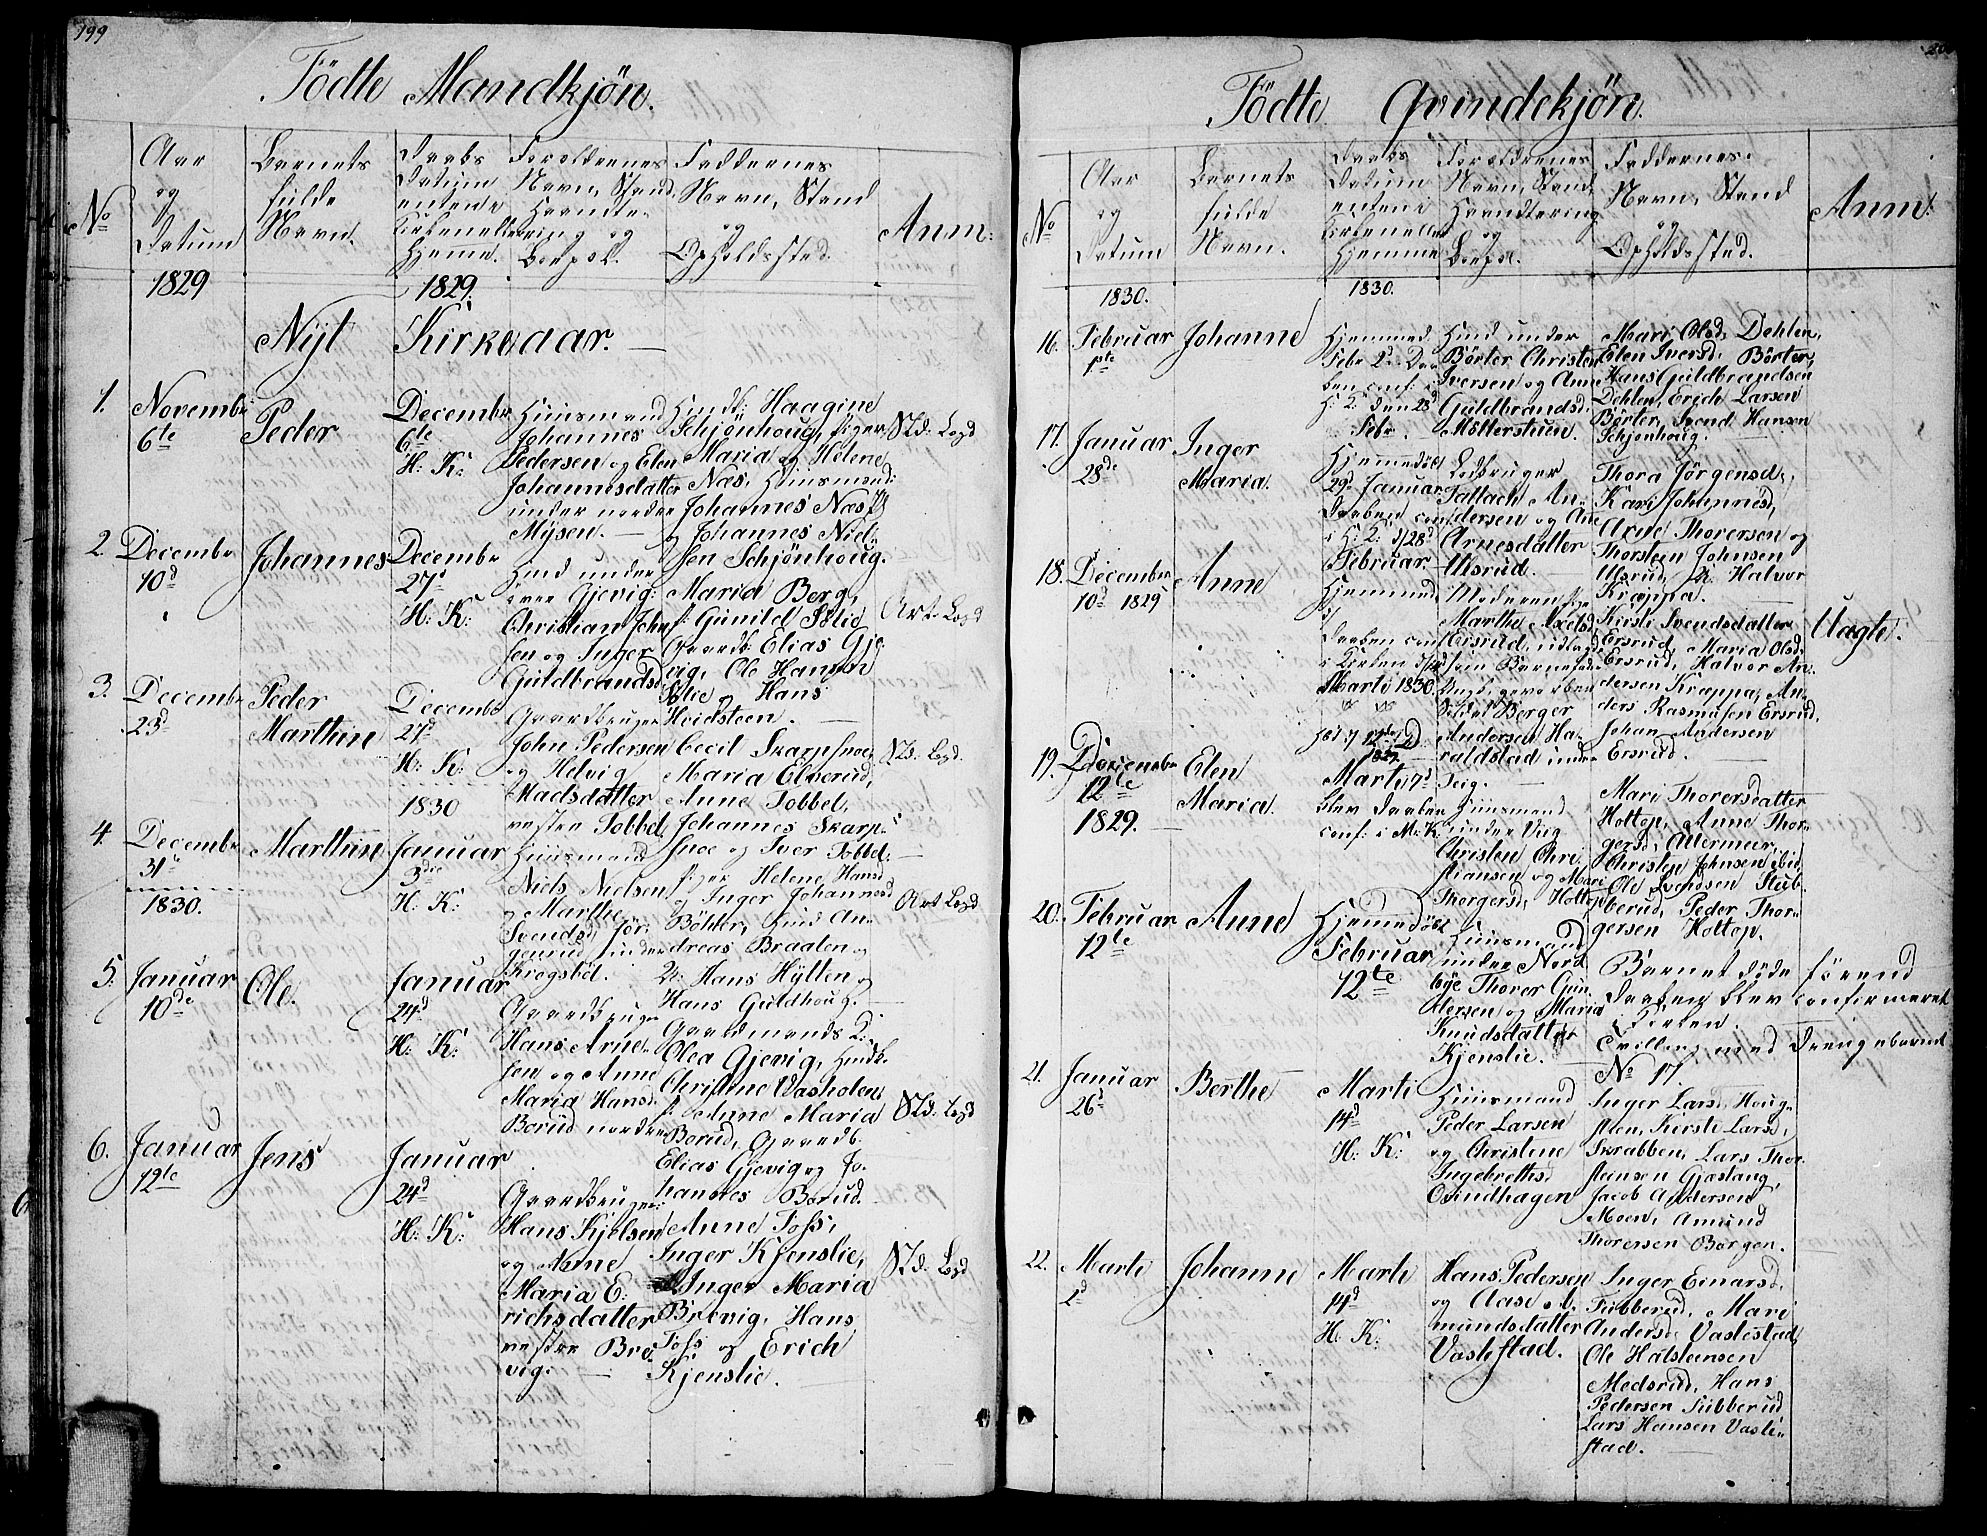 199
Födte Mandkjön.
No
Aar
og
Datum
Barnets
fulde
Navn.
Daabs
Datum
enten i
Kirken eller
Hjemme.
Forældrenes
Navn, Stand,
Haandte-
ring og
Boepæl.
Faddernes
Navn, Stand
og
Opholdssted.
Anm:
1829
1829.
Nyt Kirkeaar.
1.
Novembr
6te
Peder
Decembr
6te
H: K:
Huusmand
Johannes
Pedersen og Elen
Johannesdatter
under nordre
Mysen.
Huusk: Haagine
Schjönhoug, Piger
Maria og Helene
Næs, Huusmænd:
Johannes Næs
og Johannes Niel-
sen Schjönhoug.
2.
Decembr
10d
Johannes
Decembr
27d
H: K:
Huusd under
Gjevig:
Christian John
sen og Inger
Guldbrandsd
Maria Berg,
P: Gunild Solie
Gaardb: Elias Gje
vig, Ole Hansen
Solie og Hans
Heidsteen.
3.
Decembr
23d
Peder
Marthin
Decembr
27d
H: K:
Gaardbruger
John Pedersen
og Helvig
Madsdatter
vestre Tobbel,
Cecil Skarpsnoe,
Maria Elverud,
Anne Tobbel,
Johannes Skarp-
snoe og Iver Tobbel.
1830
4.
Decembr
31te
Marthin
Januar
3die
H: K:
Huusmand
Niels Nielsen
og Marthe
Svendsd
Krogsböl.
Piger Helene Hansd
og Inger Johannesd
Böhler, Huusd An-
dreas Braaten og
Hans Hytten og
Hans Guldhoug.
1830.
5.
Januar
10de
Ole.
Januar
24d
H: K:
Gaardbruger
Hans Arne-
sen og Anne
Maria Hansd
Borud nordre
Gaardmands K:
Olea Gjevig, Huusk:
Christine Vasholen,
P: Anne Maria
Borud, Gaardb.
Elias Gjevig og Jo-
hannes Borud.
6.
Januar
12te
Jens
Januar
24d
H: K:
Gaardbruger
Hans Kjelsen
og Anne
Maria E-
richsdatter
vestre Bre-
vig.
Anne Foss,
Inger Kjenslie,
Inger Maria
Brevig, Hans
Foss og Erich
Kjenslie.
Födte Qvindekjön.
No
Aar
og
Datum
Barnets
fulde
Navn.
Daabs
Datum
enten i
Kirken eller
Hjemme
Forældrenes
Navn, Stand,
Haandtering
og
Boepæl.
Faddernes
Navn, Stand
og
Opholdssted.
Anm:
1830.
1830.
16.
Februar
1ste
Johanne
Huusd under
Börter Christen
Iversen og Ane
Guldbrandsd.
Mötterstuen.
Mari Olsd. Dehlen,
Elen Iversd. Börter,
Hans Guldbrandsen
Dehlen, Erich Larsen
Börter, Svend Hansen
Schjönhoug.
17.
Januar
28de
Inger
Maria.
Hjemmedöbt
29d Januar
Daaben conf
i H: K: d/28d
Februar
Tallach An-
dersen og Ane
Arnesdatter
Ulsrud.
Thora Jörgensd.,
Kari Johannesd,
Arne Thorersen og
Thorsteen Johnsen
Ulsrud, Halvor
Krappa.
18.
December
10d 1829
Anne
Marti 1830.
Marthe Axelsd
Berger
Andersen Ha-
raldstad under
Teig.
Kirsti Svendsdatter
Ersrud, Maria Olsd.
Ersrud, Halvor An-
dersen Krappa, An-
ders Rasmusen Ersrud,
Johan Andersen
Ersrud.
Uægte.
19.
December
12te
1829.
Elen
Maria.
Marti 7d
blev Daaben
conf: i M: K:
Huusmand
under Viig
Christen Chri-
stiansen og Mari
Thorgersd, Hottop
Mari Thorersdatter
Hottop, Anne Thor-
gersd,
Christen Johnsen ibid
Ole Svendsen Stub-
berud, Peder Thor-
gersen Hottop.
20.
Februar
12te
Anne
Hjemmedöbt
Februar
12te
Huusmand
under Nord
bye Thorer Gun
dersen og Maria
Knudsdatter
Kjenslie.
Barnet döde förend
Daaben blev confirmeret
i Kirken.
Tvilling med Drengebarnet
No 17.
21.
Januar
26d
Berthe
Marti
14d
H: K:
Huusmand
Peder Larsen
og Christine
Ingebretsd
Ovindhagen
Inger Larsd, Houg-
sten, Kersti Larsd,
Skrabben, Lars Thor-
stensen Gjæstang,
Jacob Andersen
Moen, Amund
Thorersen Borgen.
22.
Marti
2d
Johanne
Marti
14d
H: K:
Hans Pedersen
og Aase
mundsdatter
Vastestad.
Inger Einarsd,
Stubberud, Mari
Andersd, Vastestad,
Ole Halsteensen
Medsrud, Hans
Pedersen Stubberud
Lars Hansen Vaste-
stad.